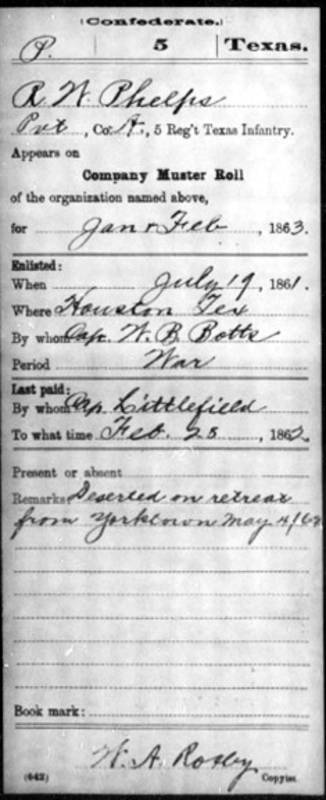 (Confederate.)
P. | 5 | Texas.
R. W. Phelps
Pvt, Co. A., 5 Reg't Texas Infantry.
Appears on
Company Muster Roll
of the organization named above,
for Jan & Feb, 1863.
Enlisted:
When July 19, 1861.
Where Houston Tex
By whom Cap. W. B. Botts
Period War
Last paid:
By whom Cap. Littlefield
To what time Feb. 28, 1862.
Present or absent
Remarks: Deserted on retreat
from Yorktown May 4/62
Book mark:
W. A. Rosby
(642) Copyist.